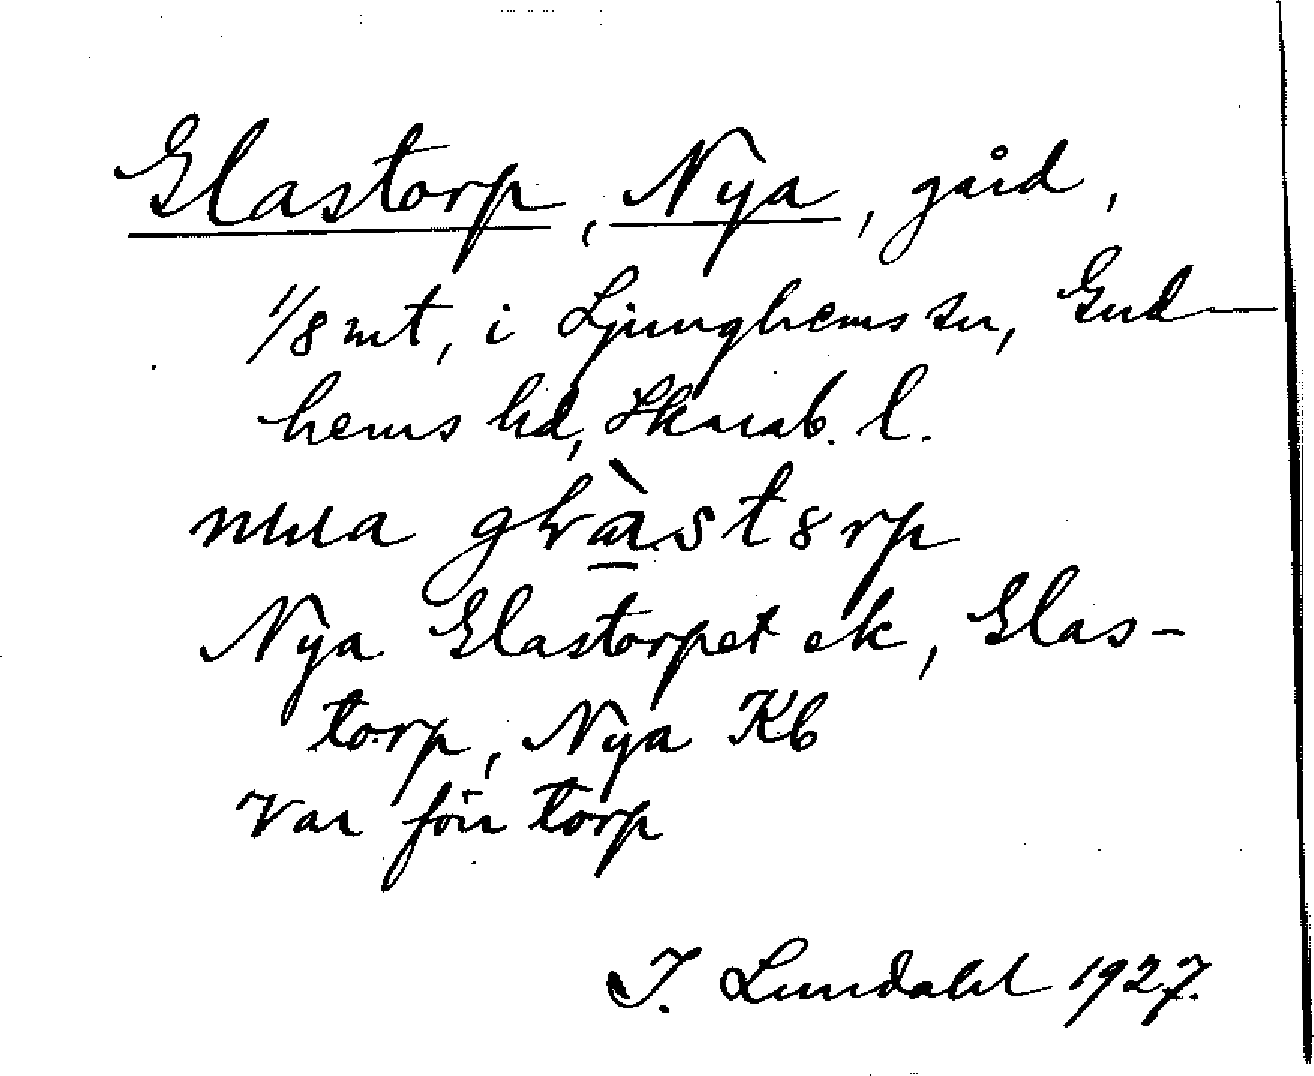 Glastorp, Nya, gård,
1/8 mt, i Ljunghems sn, Gud-
hems hd, Skarab. l.
Nya Glastorpet ek, Glas-
torp, Nya Kb
Var förr torp
I. Lundahl 1927.